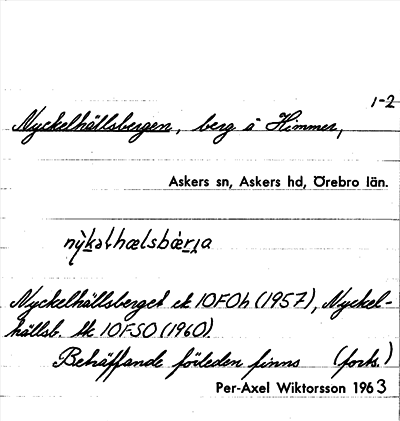 1-2
Nyckelhällsbergen, berg å Himmer,
Askers sn, Askers hd, Örebro län.
Nyckelhällsberget ek 10FOh (1957), Nyckel-
hällsb. tk 10FSO (1960).
Beträffande förleden finns (forts.)
Per-Axel Wiktorsson 1963